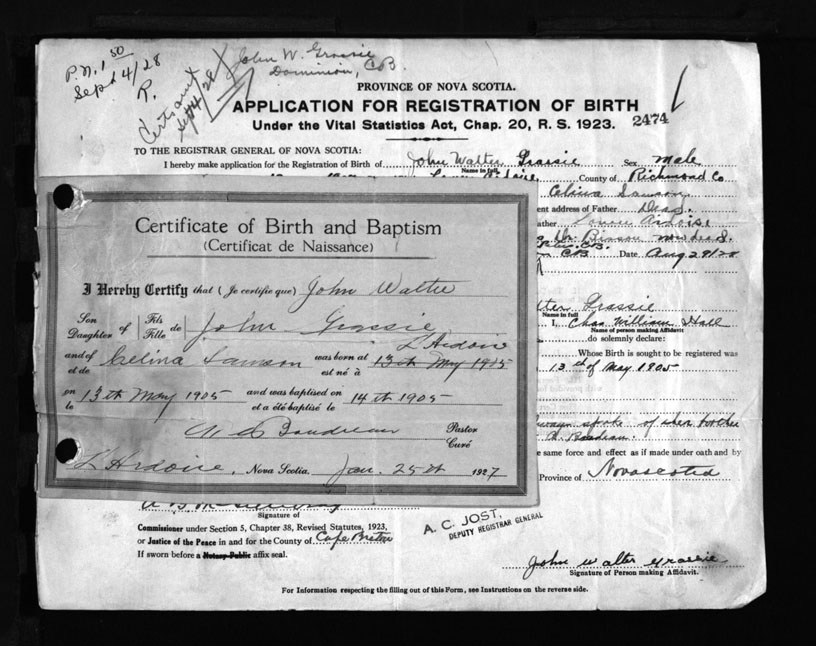 P.N. 1 50
Sept 4/28
R.
Sept 4/28
John W. Grassie
Dominion, C.B.
PROVINCE OF NOVA SCOTIA.
APPLICATION FOR REGISTRATION OF BIRTH
2474
Under the Vital Statistics Act, Chap. 20, R. S. 1923.
TO THE REGISTRAR GENERAL OF NOVA SCOTIA:
I hereby make application for the Registration of Birth of John Walter Grassie Sex Male
Name in full
County of Richmond Co
Celina Samson
ent address of Father Dead
ather Ardoise
C.B. Date Aug 29/28
Certificate of Birth and Baptism
(Certificat de Naissance)
I Hereby Certify that (Je certifie que) John Walter
Son Daughter of Fils Fille de John Grassie
L'Ardoise
and of et de Celina Samson was born at est né à 13th May 1905
on le 13th May 1905 and was baptised on et a été baptisé le 14th 1905
Boudreau Pastor Curé
L'Ardoise, Nova Scotia, Jan. 25th 1927
lter Grassie
Name in full
I, Chas William Hall
Name of person making Affidavit
do solemnly declare:
Whose Birth is sought to be registered was
13th of May 1905
always spoke of her brother
Boudreau.
e same force and effect as if made under oath and by
Province of Novascotia
Signature of
Commissioner under Section 5, Chapter 38, Revised Statutes, 1923,
or Justice of the Peace in and for the County of Cape Breton
If sworn before a Notary Public affix seal.
A. C. JOST,
DEPUTY REGISTRAR GENERAL
John Walter Grassie
Signature of Person making Affidavit.
For Information respecting the filling out of this Form, see Instructions on the reverse side.